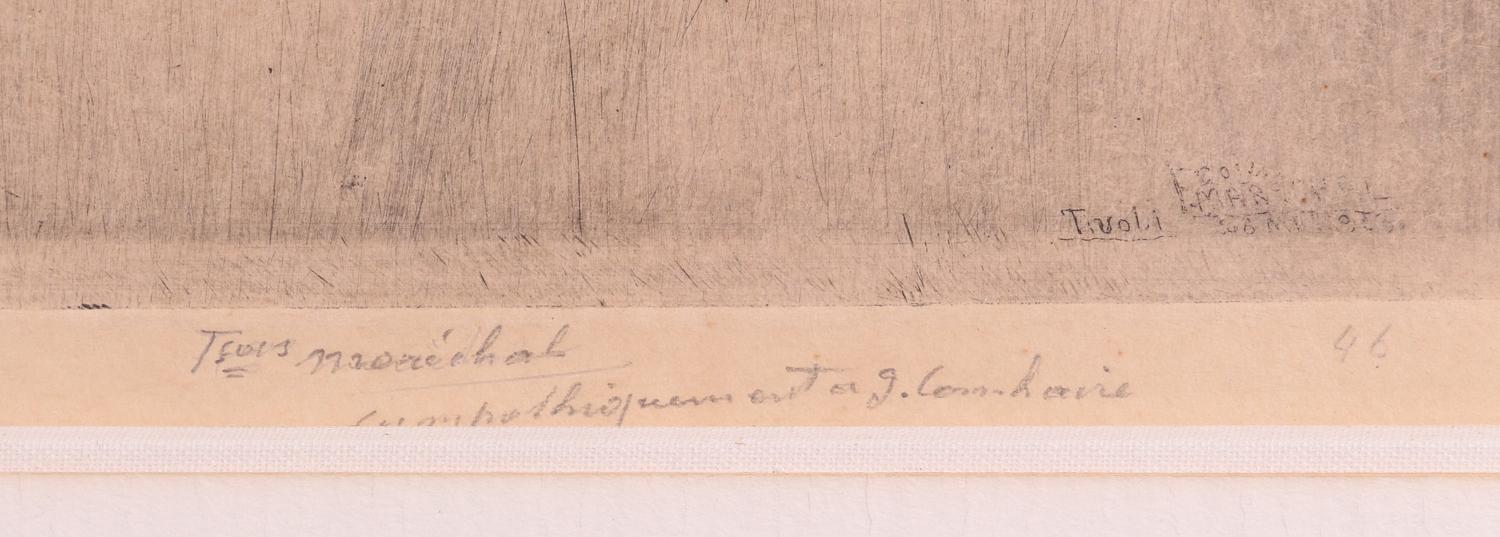 Tivoli
MARECHAL
Fçois Maréchal
46
sympathiquement a G. Comhaire